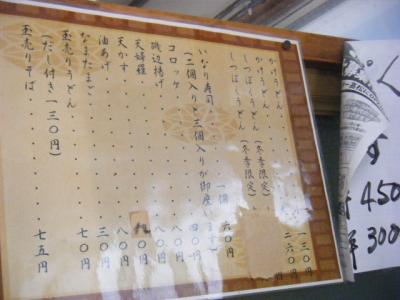 かけうどん・・・・・・・・一三〇円
かけうどん(冬季限定)・・二六〇円
しっぽくうどん
しっぽくうどん(冬季限定)
いなり寿司・・・・一個 六〇円
(二個入りと三個入りが御座います)
コロッケ・・・・・・・・・四〇円
磯辺揚げ・・・・・・・・・八〇円
天婦羅・・・・・・・・・・円
天かす・・・・・・・・・・八〇円
油あげ・・・・・・・・・・三〇円
なまたまご・・・・・・・・七〇円
玉売りうどん
(だし付き一三〇円)
玉売りそば・・・・・・・・七五円
450
300